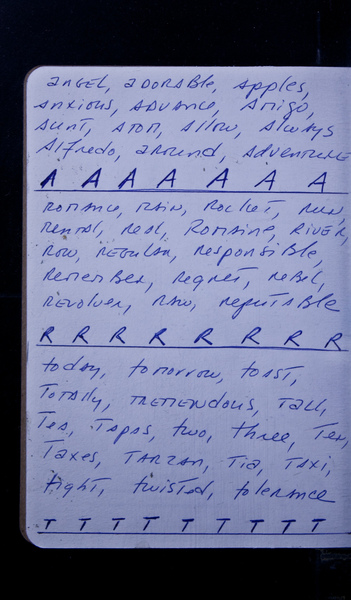 angel, adorable, apples,
anxious, advance, Amigo,
aunt, atom, allow, always
Alfredo, around, adventure
A A A A A A A
romance, rain, rocket, run,
rental, real, Romaine, river,
row, regular, responsible
remember, regret, rebel,
revolver, raw, reputable
R R R R R R R R
today, tomorrow, toast,
Totally, tremendous, tall,
Tea, Tapas, two, three, Ten,
Taxes, Tarzan, Tia, Taxi,
tight, twisted, tolerance
T T T T T T T T T